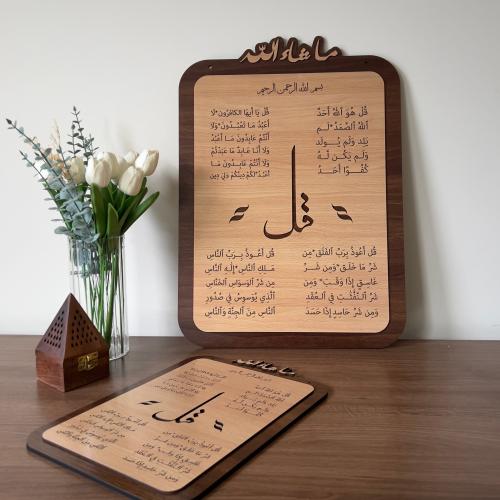 ما شاء الله
بسم الله الرحمن الرحيم
قُل هُوَ ٱللَّهُ أَحَدٌ
ٱللَّهُ ٱلصَّمَدُ*لَم
يَلِد وَلَم يُولَد
وَلَم يَكُن لَّهُ
كُفُوًا أَحَدٌ
قُل يَا أَيُّهَا الكَافِرُونَ*لَا
أَعبُدُ مَا تَعبُدُونَ*وَلَا
أَنتُم عَابِدُونَ مَا أَعبُدُ
وَلَا أَنَا عَابِدٌ مَا عَبَدتُم
وَلَا أَنتُم عَابِدُونَ مَا
أَعبُدُ*لَكُم دِينُكُم وَلِيَ دِينِ
قل
قُل أَعُوذُ بِرَبِّ الفَلَقِ*مِن
شَرِّ مَا خَلَقَ*وَمِن شَرِّ
غَاسِقٍ إِذَا وَقَبَ* وَمِن
شَرِّ ٱلنَّفَّٰثَٰتِ فِي ٱلعُقَدِ
وَمِن شَرِّ حَاسِدٍ إِذَا حَسَدَ
قُل أَعُوذُ بِرَبِّ النَّاسِ
مَلِكِ ٱلنَّاسِ*إِلَٰهِ ٱلنَّاسِ
مِن شَرِّ ٱلوَسوَاسِ ٱلخَنَّاسِ
ٱلَّذِي يُوَسوِسُ فِي صُدُورِ
ٱلنَّاسِ مِنَ ٱلجِنَّةِ وَٱلنَّاسِ
ما شاء الله
قل